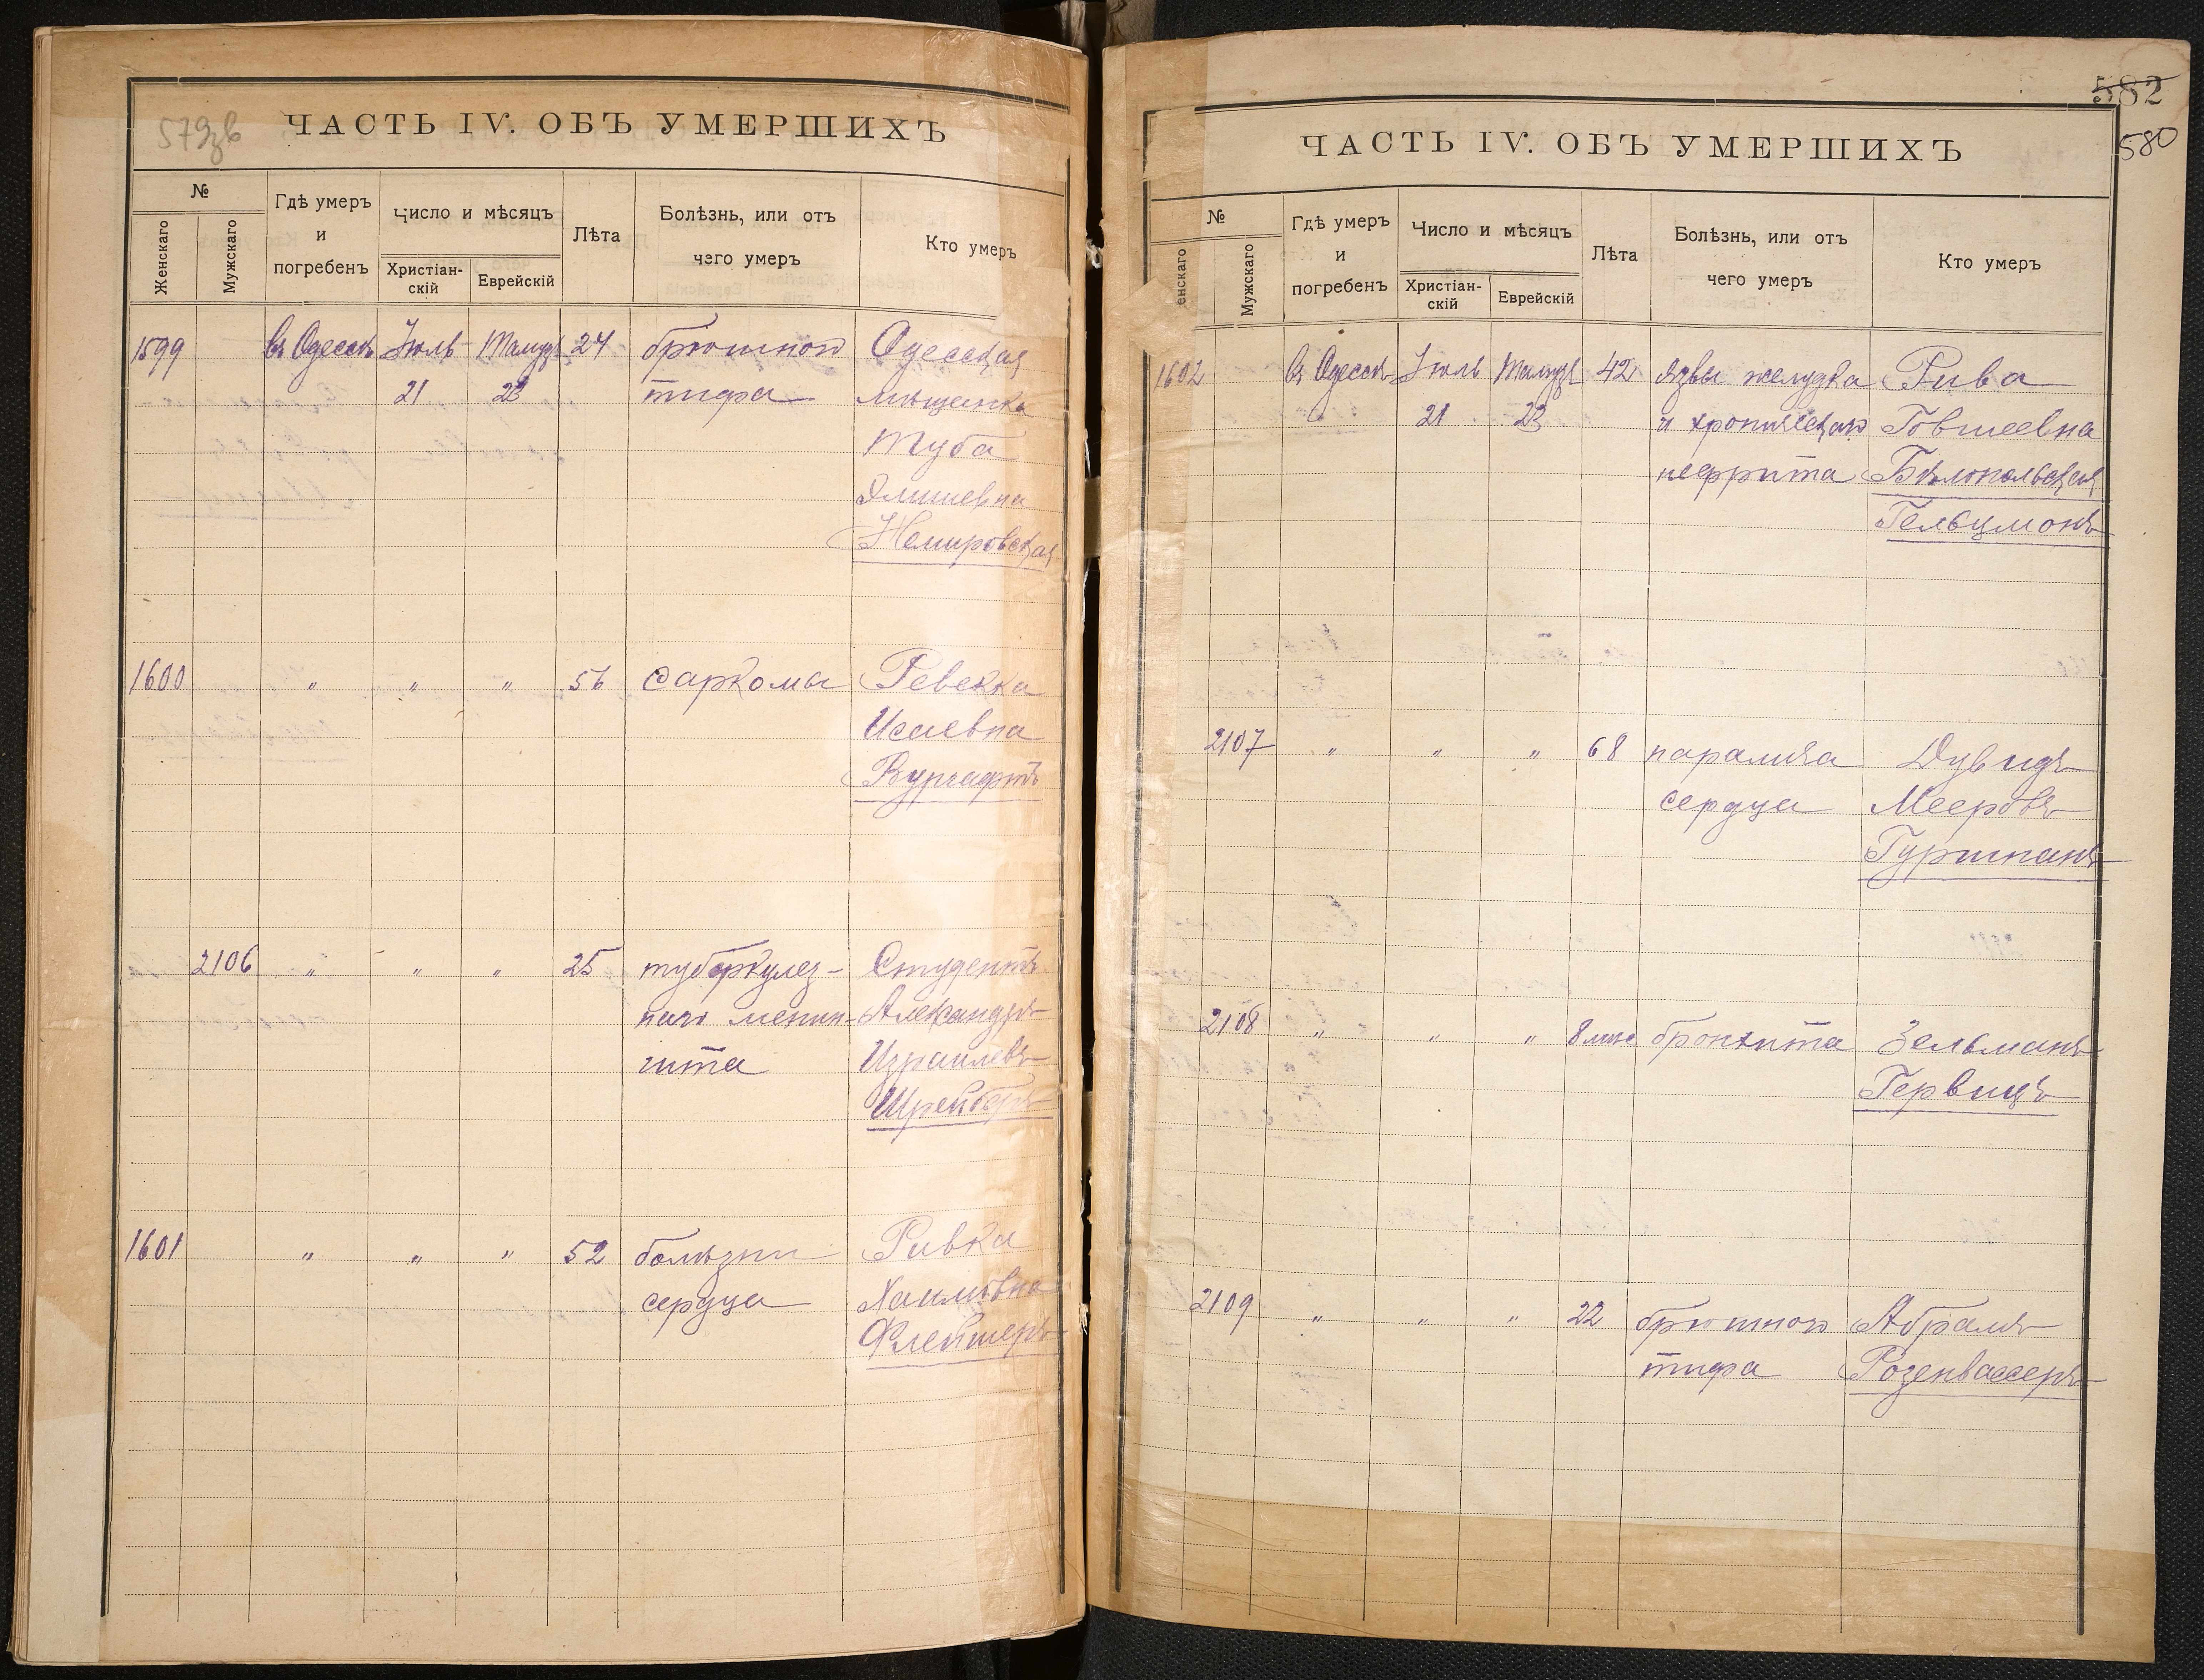 579зв
ЧАСТЬ IV. ОБЪ УМЕРШИХЪ
№
Женскаго
Мужскаго
Гдѣ умеръ
и
погребенъ
Число и мѣсяцъ
Христіан-
скій
Еврейскій
Лѣта
Болѣзнь, или отъ
чего умеръ
Кто умеръ
1599 въ Одессѣ Іюль Тамузъ 24 брюшного Одесская
21 23 тифа мѣщанка
Туба
Немировская
1600 " " " 56 саркомы Ревекка
Исаевна
Вургафтъ
2106 " " " 25 туберкулез- Студентъ
наго менин- Александръ
гита Израилевъ
Шрейберъ
1601 " " " 52 болѣзни Ривка
сердца Хаимовна
Флейшеръ
582
580
ЧАСТЬ IV. ОБЪ УМЕРШИХЪ
№
енскаго
Мужскаго
Гдѣ умеръ
и
погребенъ
Число и мѣсяцъ
Христіан-
скій
Еврейскій
Лѣта
Болѣзнь, или отъ
чего умеръ
Кто умеръ
1602 въ Одессѣ Іюль Тамузъ 42 язвы желудка Рива
21 23 и хроническаго Говшеевна
нефрита Бѣлопольская
Гельцмонъ
2107 " " " 68 паралича Дувидъ
сердца Мееровъ
Гуршманъ
2108 " " " 8 мѣс бронхита Зельманъ
Гервицъ
2109 " " " 22 брюшного Абрамъ
тифа Розенвассеръ